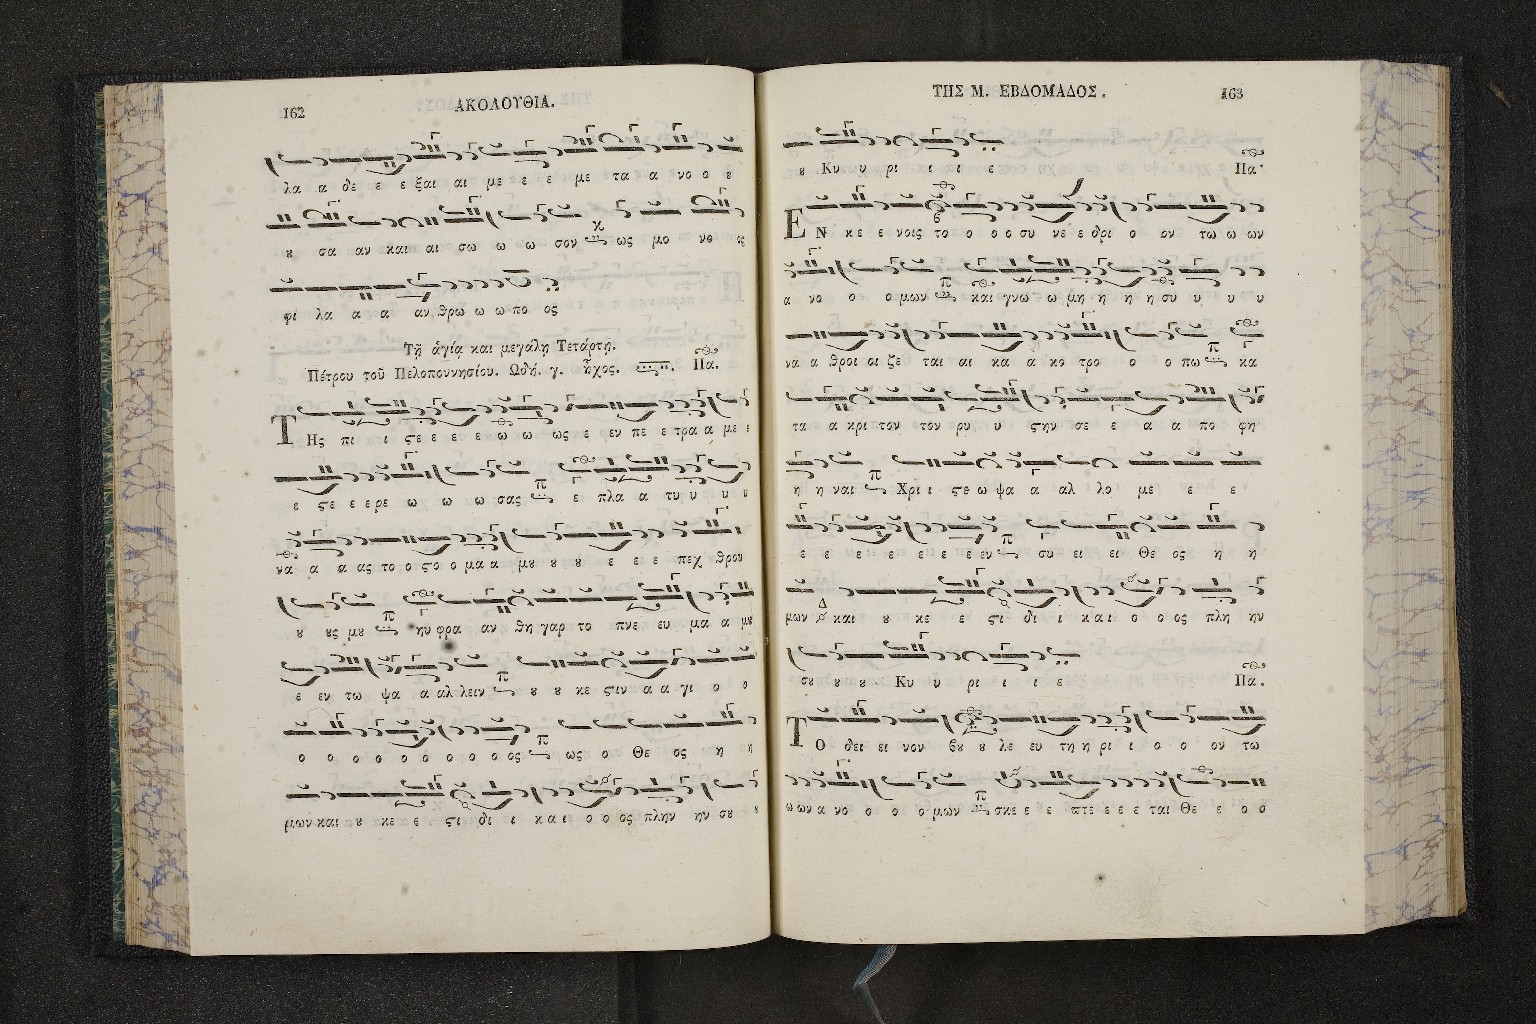 162
ΑΚΟΛΟΥΘΙΑ.
λα α δε ε ε ξαι αι με ε ε με τα α νο ο ε
κ σα αν και αι σω ω ω σον κ ως μο νο ος
φι λα α α αν θρω ω ω πο ος
Τῇ ἁγίᾳ και μεγάλῃ Τετάρτῃ.
Πέτρου τοῦ Πελοποννησίου. Ωδή. γ. ἦχος. Πα.
Της πι ι ςε ε ε ε ω ω ως ε εν πε ε τρα α με ε
ε ςε ε ε ρε ω ω ω σας π ε πλα α τυ υ υ υ
να α α ας το ο ςο ο μα α μȣ ȣ ȣ ε ε ε πεχ θρου
ȣ ȣς μȣ π ηυ φρα αν θη γαρ το πνε ευ μα α μȣ
ε εν τω ψα α αλ λειν π ȣ ȣ κε ςιν α α γι ο ο
ο ο ο ο ο ο ο ο ο ος π ως ο Θε ος η η
μων και ȣ κε ε ςι δι ι κ α ι ο ο ος πλην ην σȣ ȣ
ΤΗΣ Μ. ΕΒΔΟΜΑΔΟΣ.
163
ȣ Κυ υ ρι ι ι ε Πα·
ΕΝ κε ε νοις το ο ο ο συ νε ε δρι ο ον τω ω ων
α νο ο ο μων π και γνω ω μη η η η συ υ υ υ
να α θροι οι ζε ται αι κα α κο τρο ο ο πω π κα
τα α κρι τον τον ρυ υ ςην σε ε α α πο φη
η η ναι π Χρι ι ςε ω ψα α αλ λο με ε ε
ε ε ε ε ε ε ε ε εν π συ ει ει Θε ος η η
μων Δ και ȣ κε ε ςι δι ι κ α ι ο ο ος πλη ην
σȣ ȣ ȣ Κυ υ ρι ι ι ε Πα.
ΤΟ δει ει νον βȣ ȣ λε ευ τη η ρι ι ο ο ον τω
ω ων α νο ο ο ο μων π σκε ε ε πτε ε ε ε ται Θε ε ο ο